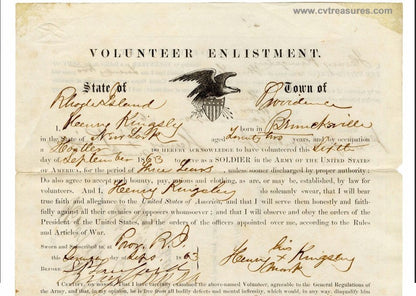 www.cvtreasures.com
VOLUNTEER ENLISTMENT.
State of Town of
Rhode Island Providence
I, Henry Kingsley born in
in the State of New York aged Twenty two years, and by occupation
a DO HEREBY ACKNOWLEDGE to have volunteered this
day of September 1863 to serve as a SOLDIER in the ARMY OF THE UNITED STATES
OF AMERICA, for the period of Three Years, unless sooner discharged by proper authority:
Do also agree to accept such bounty, pay, rations and clothing, as are, or may be, established by law for
volunteers. And I, Henry Kingsley do solemnly swear, that I will bear
true faith and allegiance to the United States of America, and that I will serve them honestly and faith-
fully against all their enemies or opposers whomsoever; and that I will observe and obey the orders of the
President of the United States, and the orders of the officers appointed over me, according to the Rules
and Articles of War.
SWORN and subscribed to, at Prov. R.I. his
this day of 63 Henry x Kingsley
BEFORE mark
I CERTIFY, ON HONOR, That I have carefully examined the above-named Volunteer, agreeably to the General Regulations
of the Army, and that, in my opinion, he is free from all bodily defects and mental infirmity, which would, in any way, disqualify him